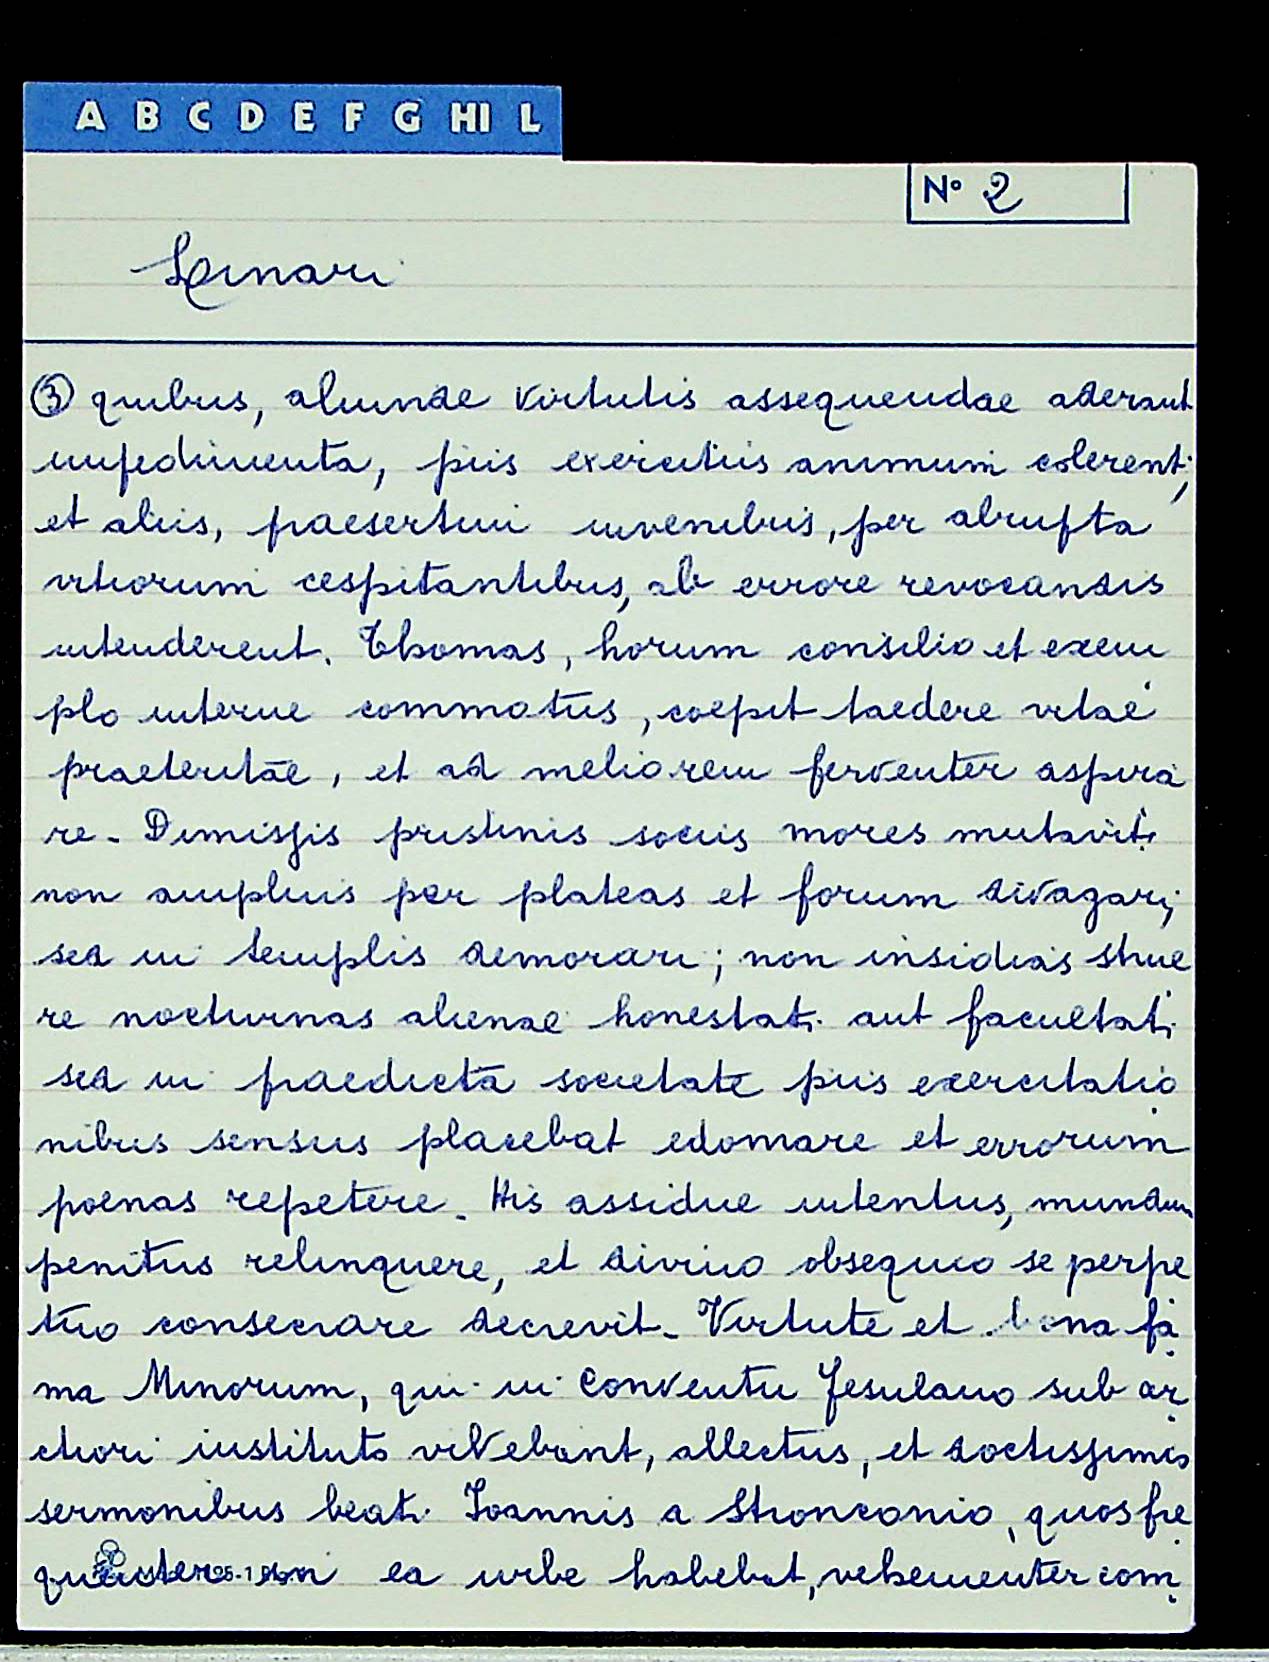 A B C D E F G HI L
Nº 2
③ quibus, aliundae virtutis assequendae aderant
impedimenta, piis exercitiis animum colerent;
et aliis, praesertim iuvenibus, per abrupta
vitiorum cespitantibus, ab errore revocandis
intenderent. Thomas, horum consilio et exem
plo interne commotus, coepit taedere vitae
praeteritae, et ad meliorem ferventer aspira
re. Dimissis pristinis sociis mores mutavit;
non amplius per plateas et forum divagari;
sed in templis demorari; non insidias strue
re nocturnas alienae honestati aut facultati
sed in praedicta societate piis exercitatio
nibus sensus placebat edomare et errorum
poenas repetere. His assidue intentus, mundum
penitus relinquere, et divino obsequio se perpe
tuo consecrare decrevit. Virtute et bona fa
ma Minorum, qui in Conventu Fesulano sub ar
ctiori instituto vivebant, allectus, et doctissimis
sermonibus beati Ioannis a Stronconio, quos fre
ea urbe habebat, vehementer com